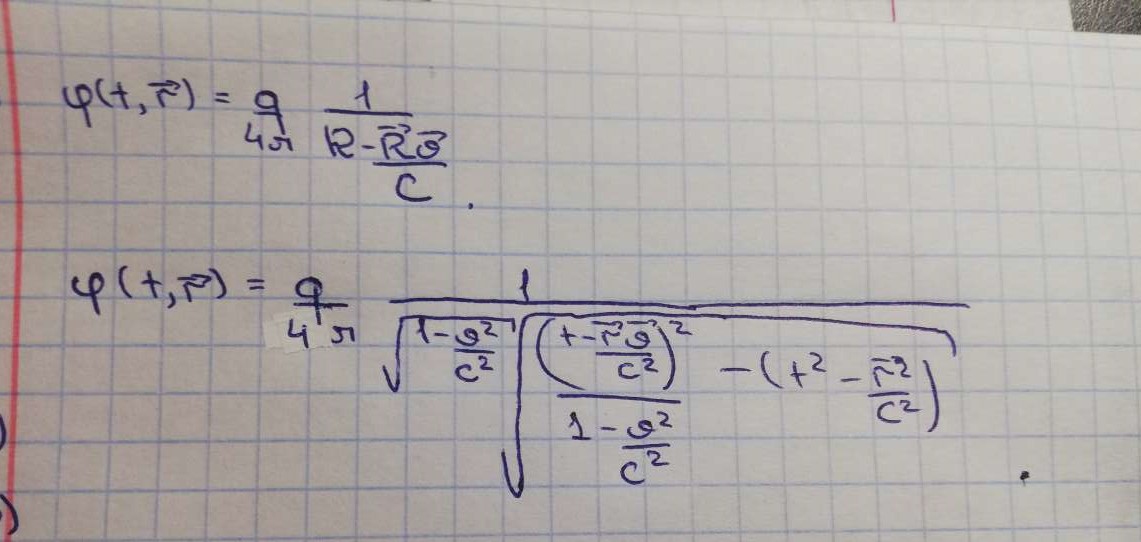 φ(t, r⃗) = q/4π 1/(R - R⃗v⃗/c).
φ(t, r⃗) = q/4π 1/(√(1-v²/c²) √((t - r⃗v⃗/c²)²/(1-v²/c²) - (t² - r⃗²/c²))).